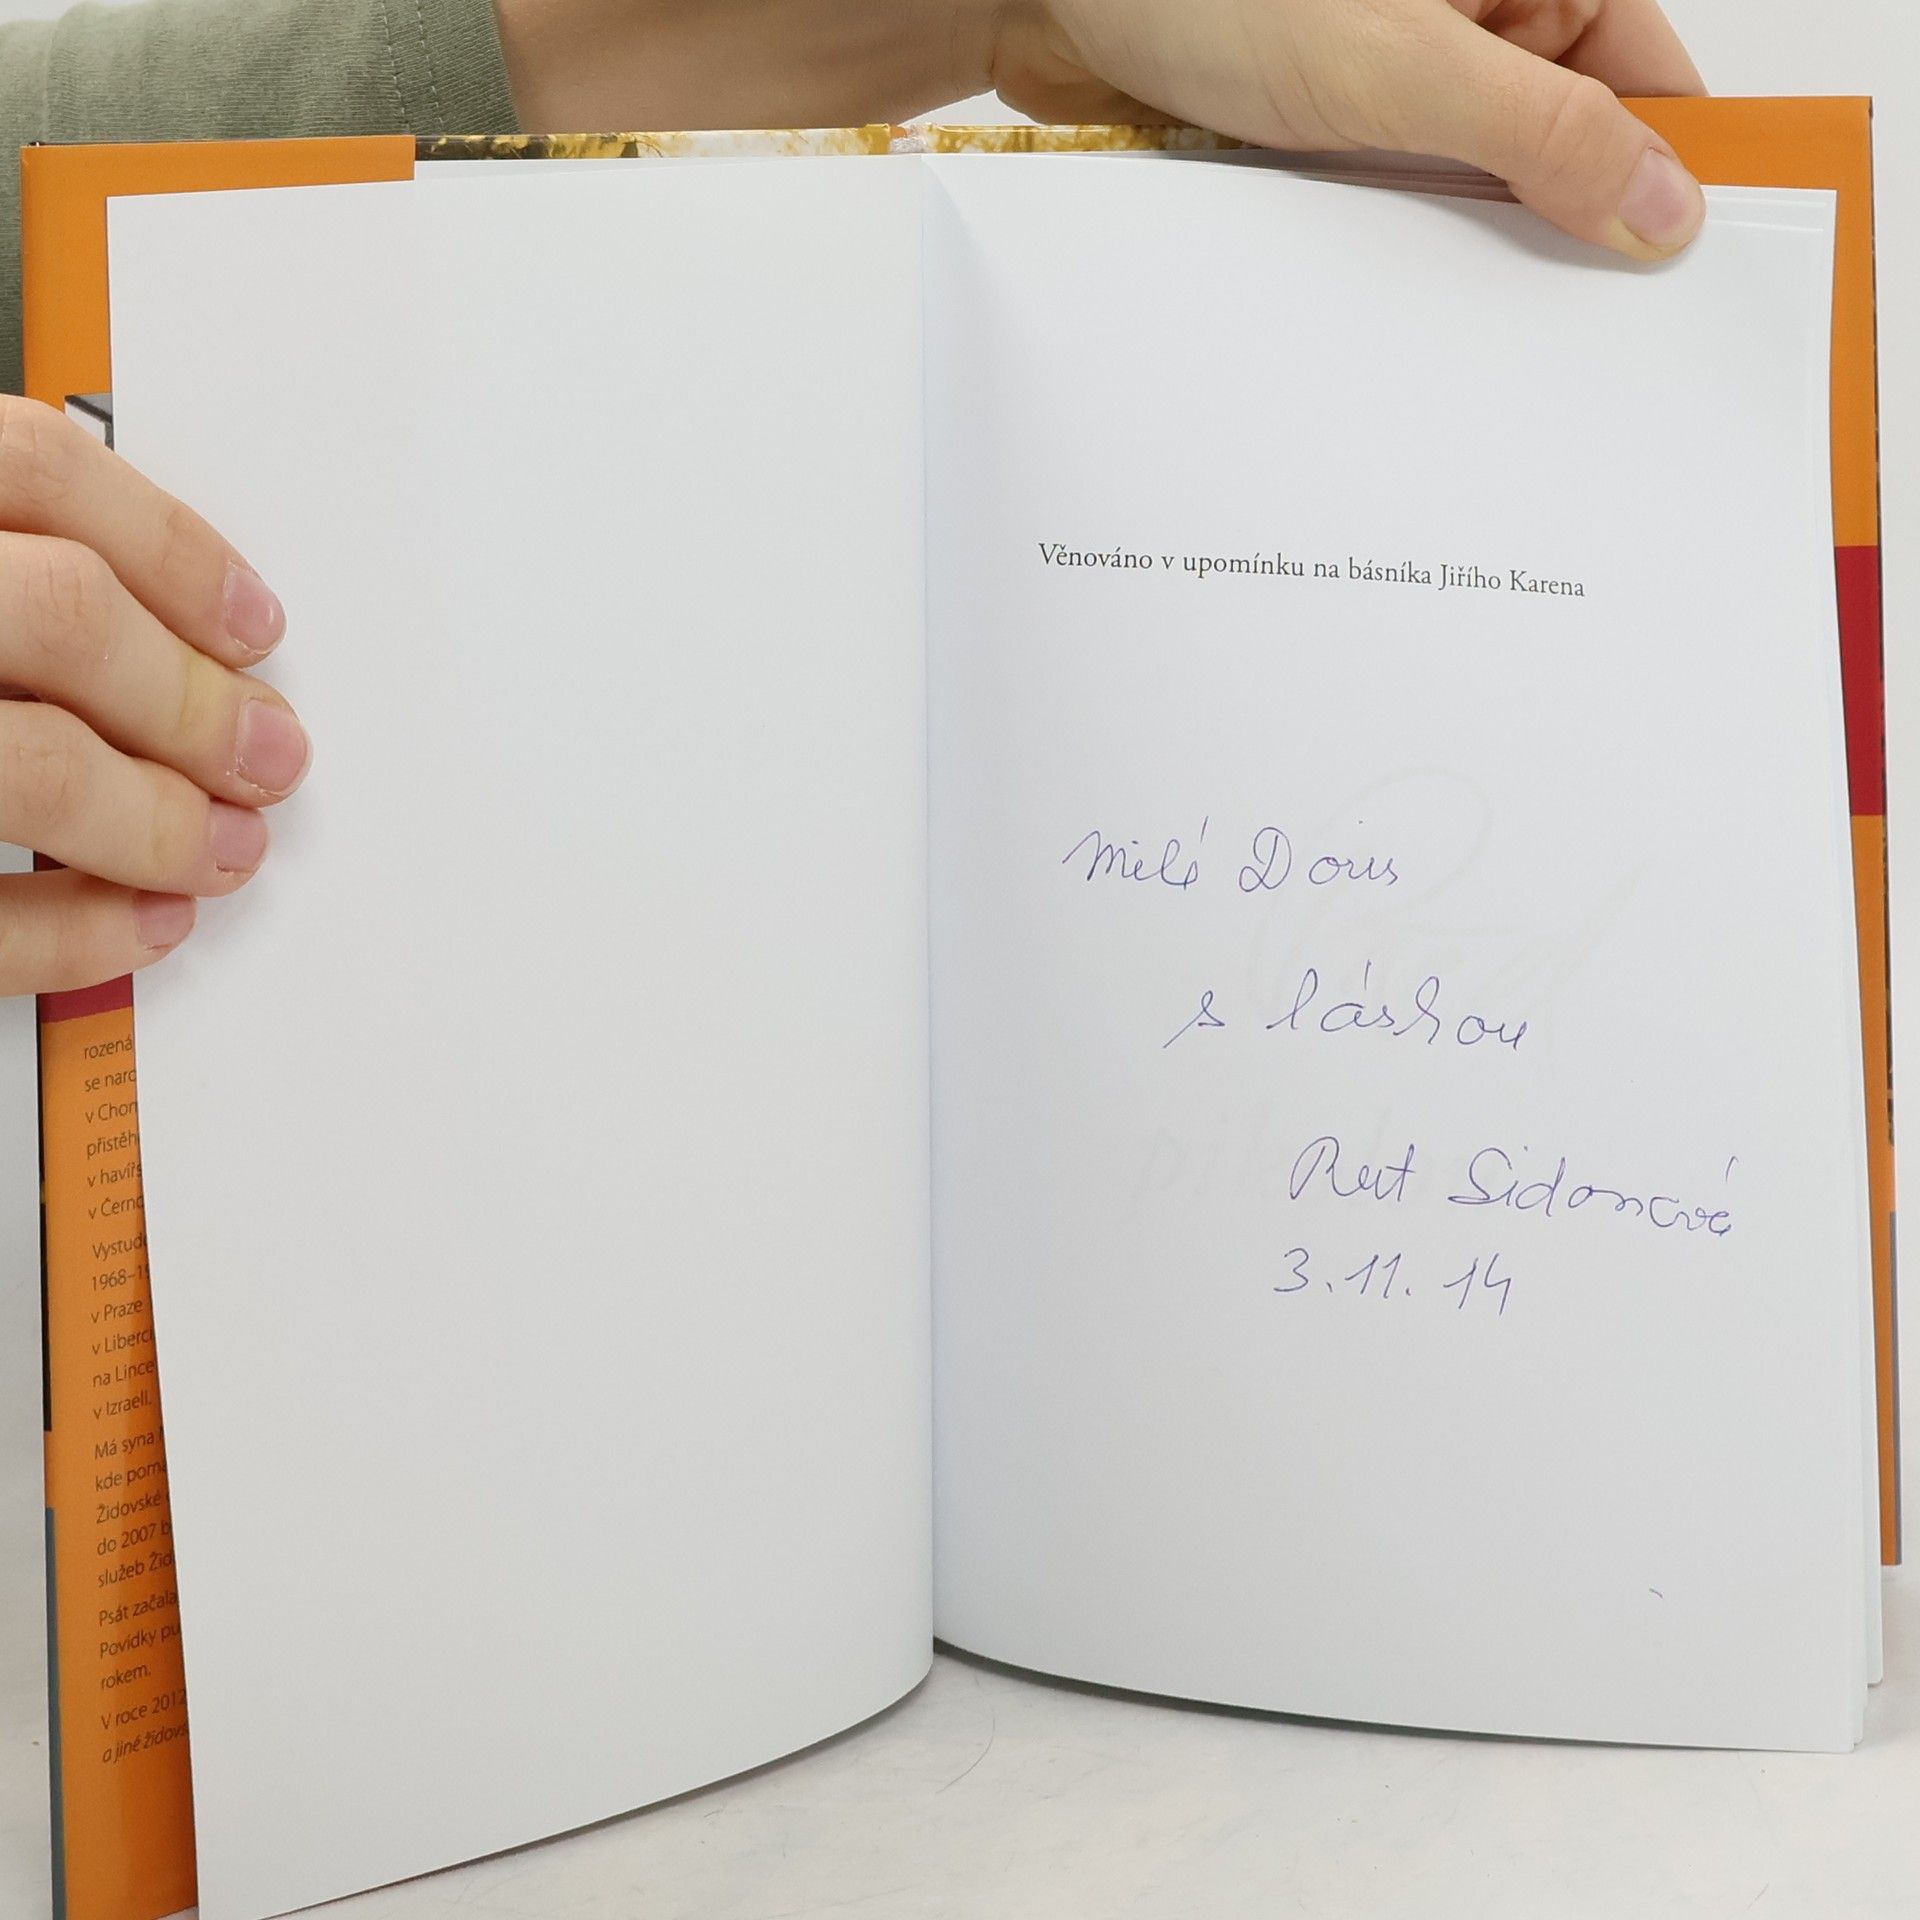 rozená
se naro
v Chom
přistěh
v havířs
v Černo
Vystudo
1968–19
v Praze
v Liberci
na Lince
v Izraeli.
Má syna
kde pomá
Židovské
do 2007 b
služeb Žid
Psát začala
Povídky pu
rokem.
V roce 2012
a jiné židovs
Věnováno v upomínku na básníka Jiřího Karena
Milé Doris
s láskou
Rut Sidonová
3.11.14